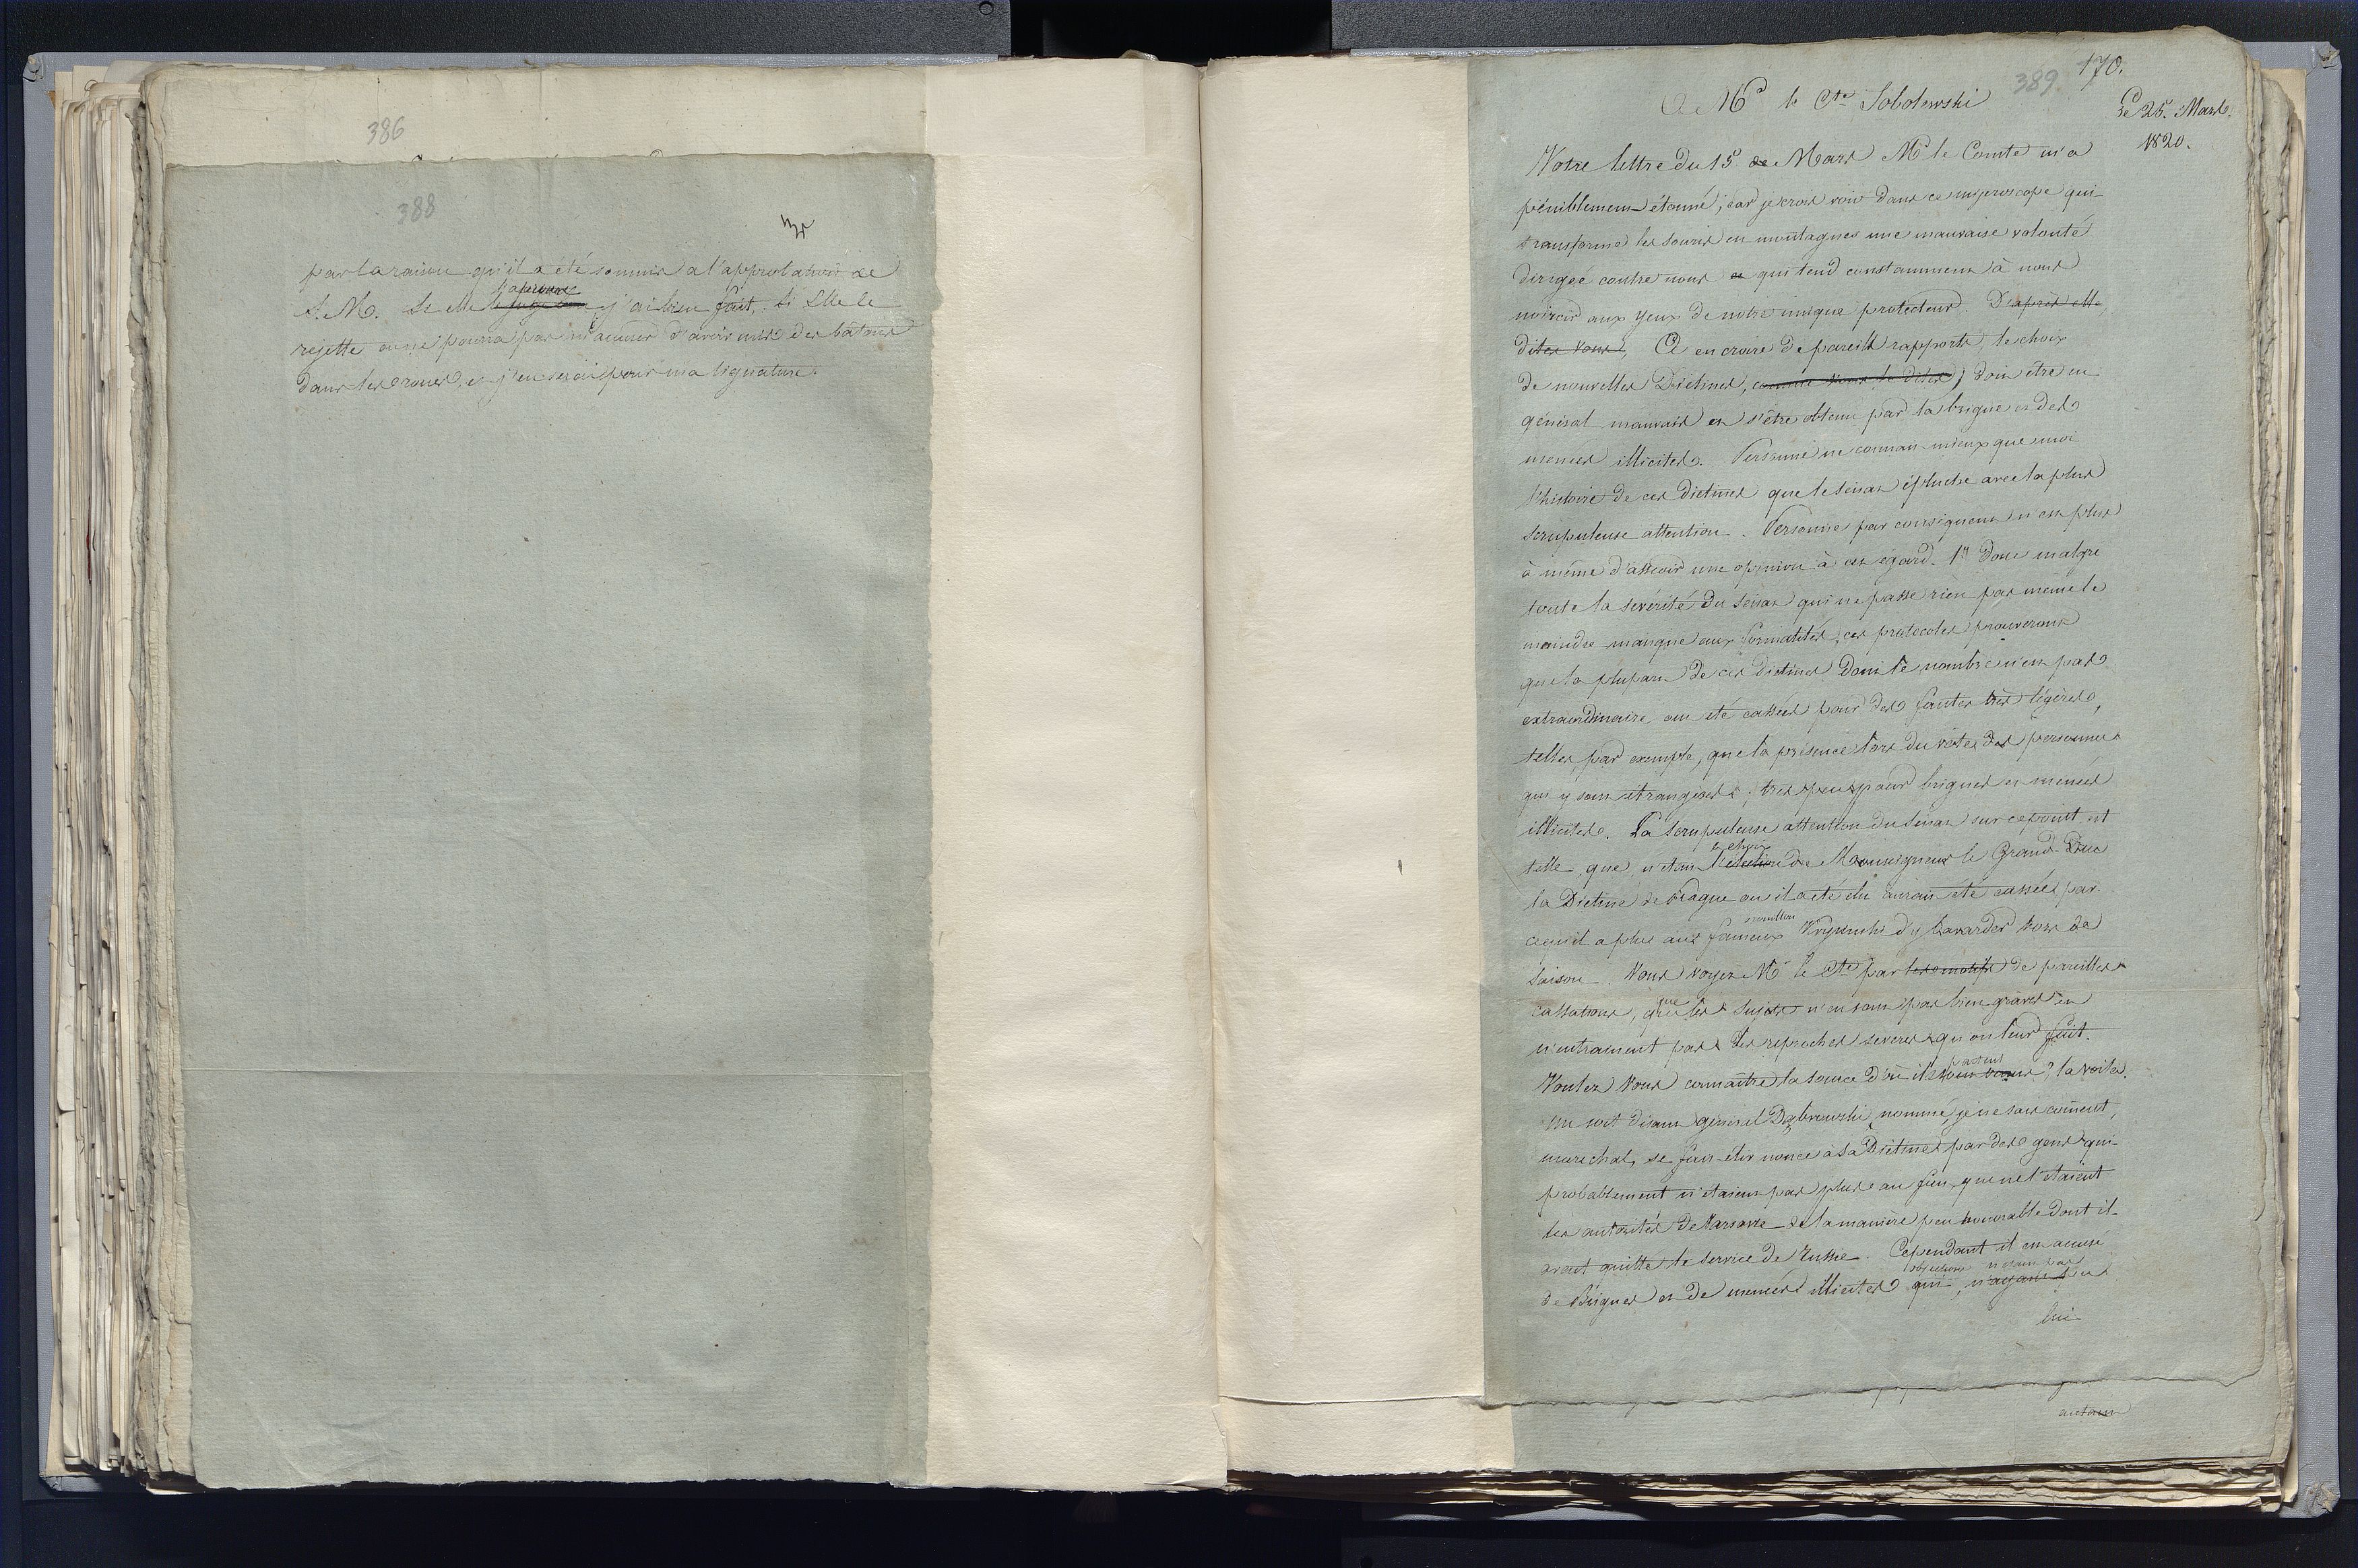 386
388
par la raison qu'il a été soumis a l'approbation de
l'approuve
S. M. Si elle le juge j'ai bien fait, si Elle le
rejette on ne poura pas m'accuser d'avoir mis des batons
dans les roues, et j'en serai pour ma signature.
389. 170.
A Mr le Cte Sobolewski
Le 25. Mars
1820.
Votre lettre du 15 de Mars Mr le Comte m'a
péniblement étonné; car je crois voir dans ce microscope qui
transforme les souris en montagnes une mauvaise volonté
dirigée contre nous et qui tend constamment à nous
noircir aux yeux de notre unique protecteur. D'après elle,
dites vous, A en croire de pareils rapports, le choix
de nouvelles Diétines, comme vous le dites, doit être en
général mauvais et s'être obtenu par la brigue et des
menees illicites. Personne ne connait mieux que moi
l'histoire de ces dietines que le Sénat épluche avec la plus
scrupuleuse attention. Personne par consequent n'est plus
à même d'asseoir une opinion à cet egard. 1° Donc malgré
toute la sevérité du Sénat qui ne passe rien pas meme le
moindre manque aux formalités, ces protocoles prouveront
que la plupart de ces dietines dont le nombre n'est pas
extraordinaire ont été cassées pour des fautes très légères,
telles, par exemple, que la présence lors du votes des personnes
qui y sont étrangères; très peu pour brigues et menees
illicites. La scrupuleuse attention du Sénat sur ce point est
le choix
telle, que, n'étoit l'élection de Monseigneur le Grand-Duc
la Dietine de Prague ou il a été élu aurait été cassée par
cequ'il a plu aux fameux Krysinski d'y bavarder hors de
saison. Vous voyez Mr le Cte par les motifs de pareilles
que
cassations, que les sujets n'en sont pas bien graves et
n'entrainent pas les reproches severes qu'on leur fait.
partent
Voulez vous connaître la source d'où ils sont venus? la voila.
Un soit disant général Dąbrowski, nommé, je ne sais coment,
marechal, se fait élir nonce à sa Dietine par des gens qui
probablement n'etaient pas plus au fait, que ne l'etaient
les autorités de Varsovie de la manière peu honorable dont il
avait quitté le service de Russie. Cependant il est accusé
objections n'etant pas
de Brigues et de menées illicites qui, n'ayant lieu
lui